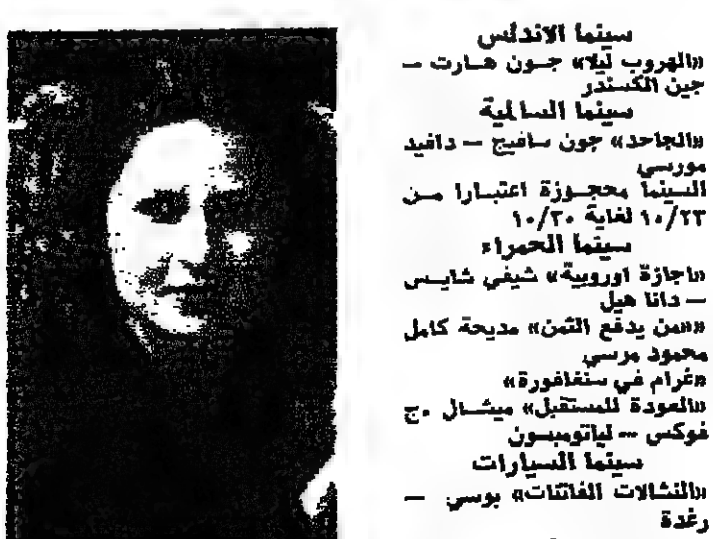 سينما الاندلس
«الهروب ليلا» جون هارت —
جين الكسندر
سينما السالمية
«الجاحد» جون سافيج — دافيد
مورسي
السينما محجوزة اعتبارا من
١٠/٢٣ لغاية ١٠/٣٠
سينما الحمراء
«اجازة اوروبية» شيفي شايس
— دانا هيل
««من يدفع الثمن» مديحة كامل
محمود مرسي
«غرام في سنغافورة»
«العودة للمستقبل» ميشال .ج
فوكس — لياتومبسون
سينما السيارات
«النشالات الفاتنات» بوسي —
رغدة